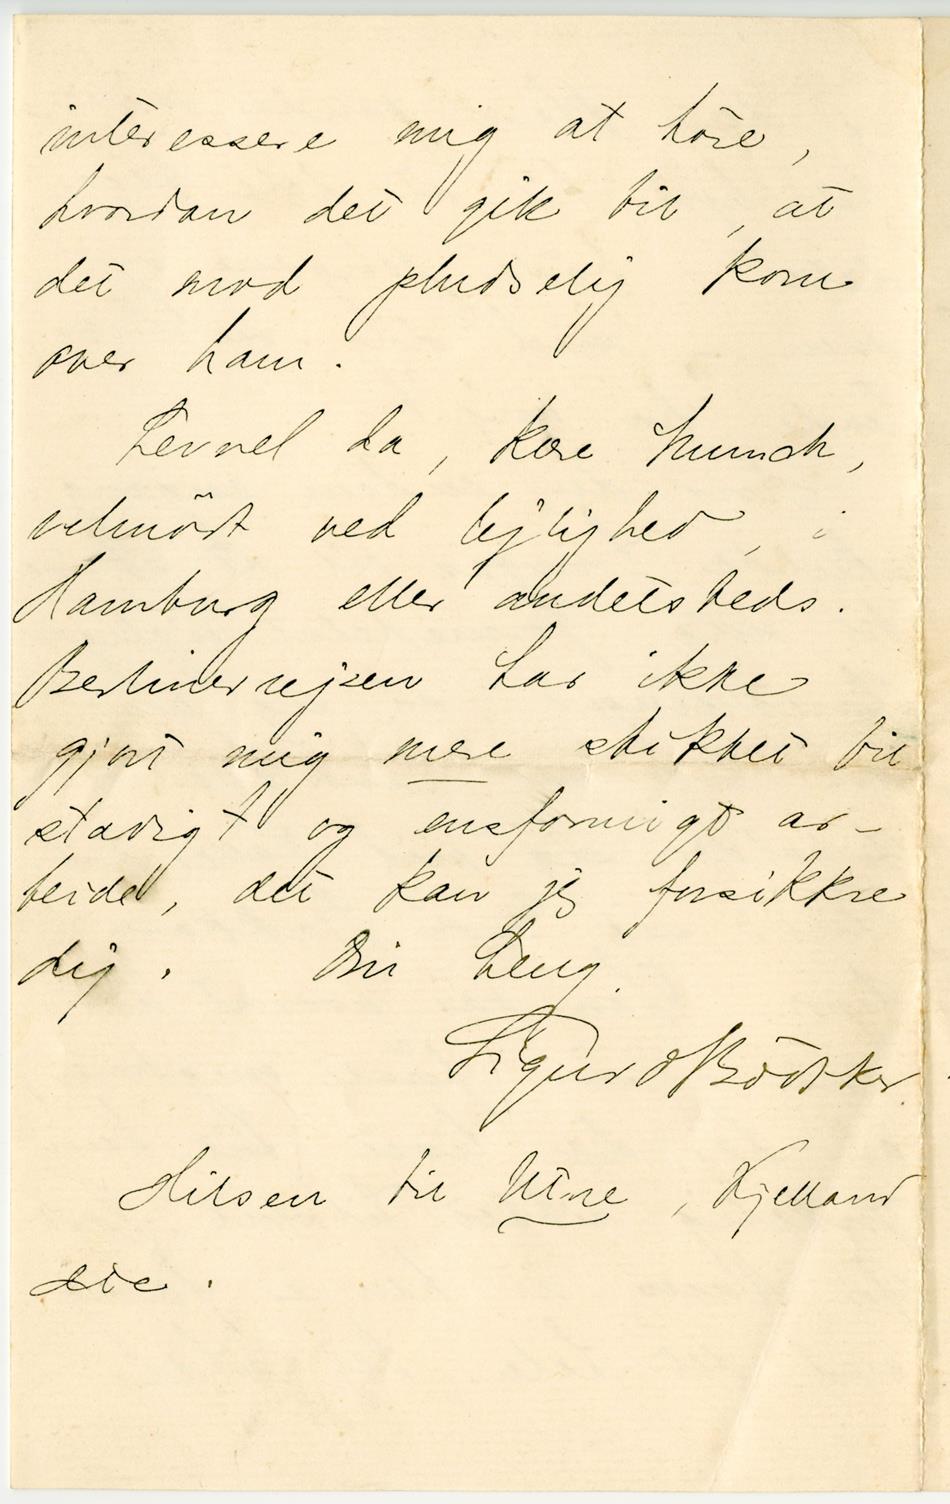 interessere mig at høre,
hvordan det gik til, at
det mod pludselig kom
over ham.
Levvel da, kære Munch,
velmødt ved lejlighed, i
Hamburg eller andetsteds.
Berlinerrejsen har ikke
gjort mig mere skikket til
stadigt og ensformigt ar-
beide, det kan jeg forsikkre
dig. Din heng.
Sigurd Bödtker.
Hilsen til Utne, Kjelland
etc.